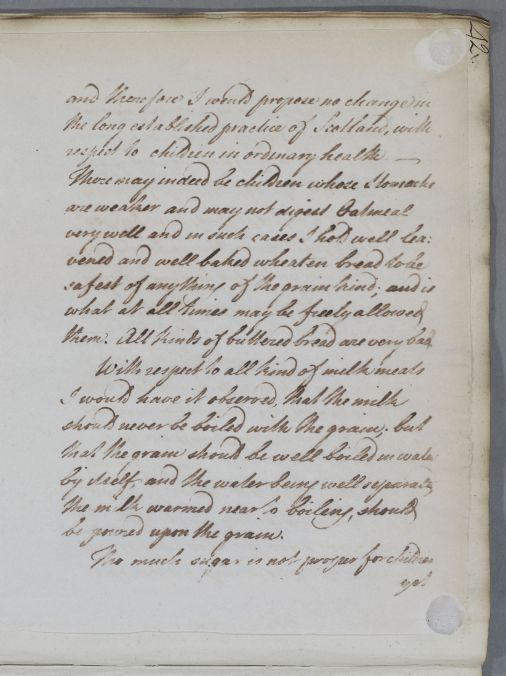 42.
and therefore I would propose no change in
the long established practice of Scotland, with
respect to children in ordinary health. —
There may indeed be children whose Stomachs
are weaker and may not digest Oatmeal
very well and in such cases I hold well lea:
vened and well baked wheaten bread to be
safest of any thing of the grain kind, and is
what at all times may be freely allowed
them. All kinds of buttered bread are very bad
With respect to all kind of milk meats
I would have it observed, that the milk
should never be boiled with the grain; but
that the grain should be well boiled in water
by itself and the water being well separated
the milk warmed near to boiling, should
be poured upon the grain.
Tho much sugar is not proper for children
yet